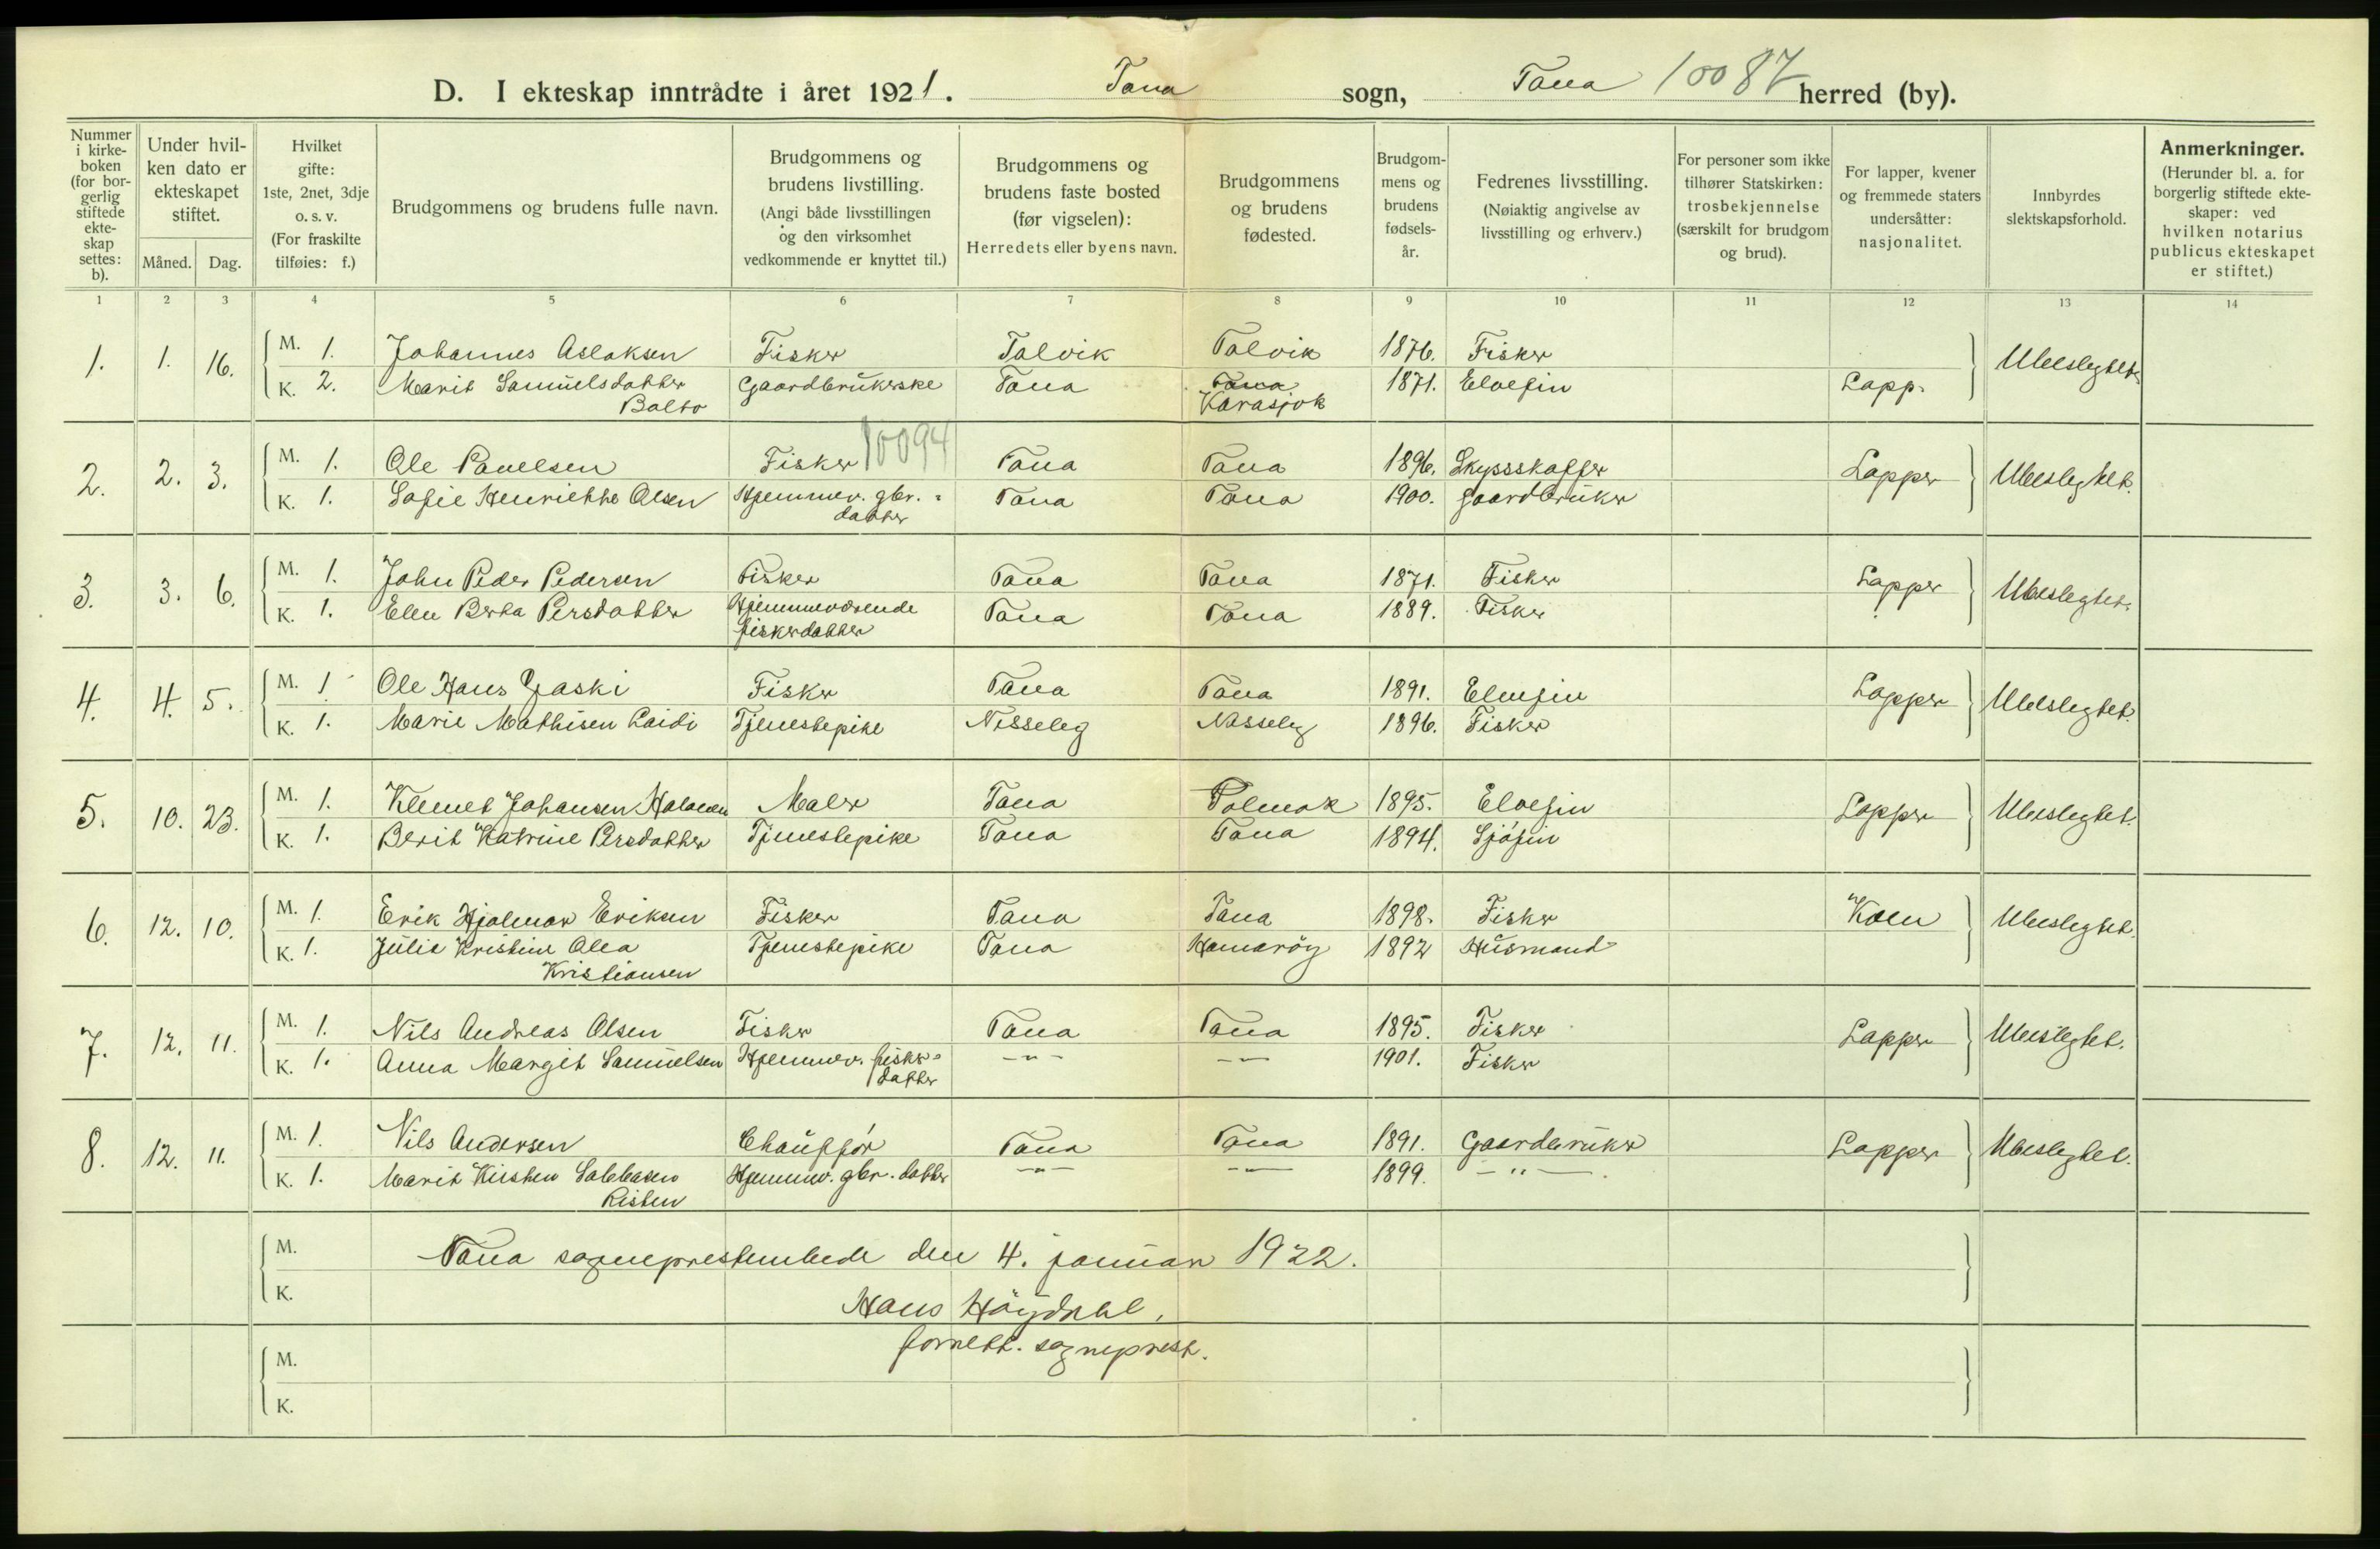 D. I ekteskap inntrådte i året 1921. Tana sogn, Tana 10087 herred (by).
Nummer i kirke-boken (for bor-gerlig stiftede ekte-skap settes: b).
Under hvil-ken dato er ekteskapet stiftet.
Måned. Dag.
Hvilket gifte: 1ste, 2net, 3dje o. s. v. (For fraskilte tilføies: f.)
Brudgommens og brudens fulle navn.
Brudgommens og brudens livstilling. (Angi både livsstillingen og den virksomhet vedkommende er knyttet til.)
Brudgommens og brudens faste bosted (før vigselen): Herredets eller byens navn.
Brudgommens og brudens fødested.
Brudgom-mens og brudens fødsels-år.
Fedrenes livsstilling. (Nøiaktig angivelse av livsstilling og erhverv.)
For personer som ikke tilhører Statskirken: trosbekjennelse (særskilt for brudgom og brud).
For lapper, kvener og fremmede staters undersåtter: nasjonalitet.
Innbyrdes slektskapsforhold.
Anmerkninger. (Herunder bl. a. for borgerlig stiftede ekte-skaper: ved hvilken notarius publicus ekteskapet er stiftet.)
1 2 3 4 5 6 7 8 9 10 11 12 13 14
1. 1. 16. M. 1. Johannes Aslaksen Fisker Talvik Talvik 1876. Fisker Ubeslegtet.
K. 2. Marit Samuelsdatter Gaardbrukerske Tana Tana 1871. Elvefin Lapp.
Balto Karasjok
10094
2. 2. 3. M. 1. Ole Pauelsen Fisker Tana Tana 1896. Skyssskaffer Lapper Ubeslegtet.
K. 1. Sofie Henriette Olsen Hjemmev. gbr.- Tana Tana 1900. gaardbruker
datter
3. 3. 6. M. 1. John Peder Pedersen Fisker Tana Tana 1871. Fisker Lapper Ubeslegtet.
K. 1. Elen Berta Persdatter Hjemmeværende Tana Tana 1889. Fisker
fiskerdatter
4. 4. 5. M. 1 Ole Hans Fisker Tana Tana 1891. Elvefin Lapper Ubeslegtet.
K. 1. Marie Mathisen Laidi Tjenestepike Nesseby Nesseby 1896. Fisker
5. 10. 23. M. 1. Klemet Johansen Maler Tana Polmak 1895. Elvefin Lapper Ubeslegtet.
K. 1. Berit Katrine Persdatter Tjenestepike Tana Tana 1894. Sjøfin
6. 12. 10. M. 1. Erik Hjalmar Eriksen Fisker Tana Tana 1898. Fisker Kven Ubeslegtet.
K. 1. Julie Kristine Olea Tjenestepike Tana Hamarøy 1892 Husmand
Kristiansen
7. 12. 11. M. 1. Nils Andreas Olsen Fisker Tana Tana 1895. Fisker Lapper Ubeslegtet.
K. 1. Anna Margit Samuelsen Hjemmev. fisker- -"- -"- 1901. Fisker
datter
8. 12. 11. M. 1. Nils Andersen Chauffør Tana Tana 1891. Gaardbruker Lapper Ubeslegtet.
K. 1. Marit Kirsten Hjemmev. gbr. datter -"- -"- 1899. -"-
Risten
M. Tana sogneprestembede den 4. januar 1922.
K. Hans Høydahl,
M. forrett. sogneprest.
K.